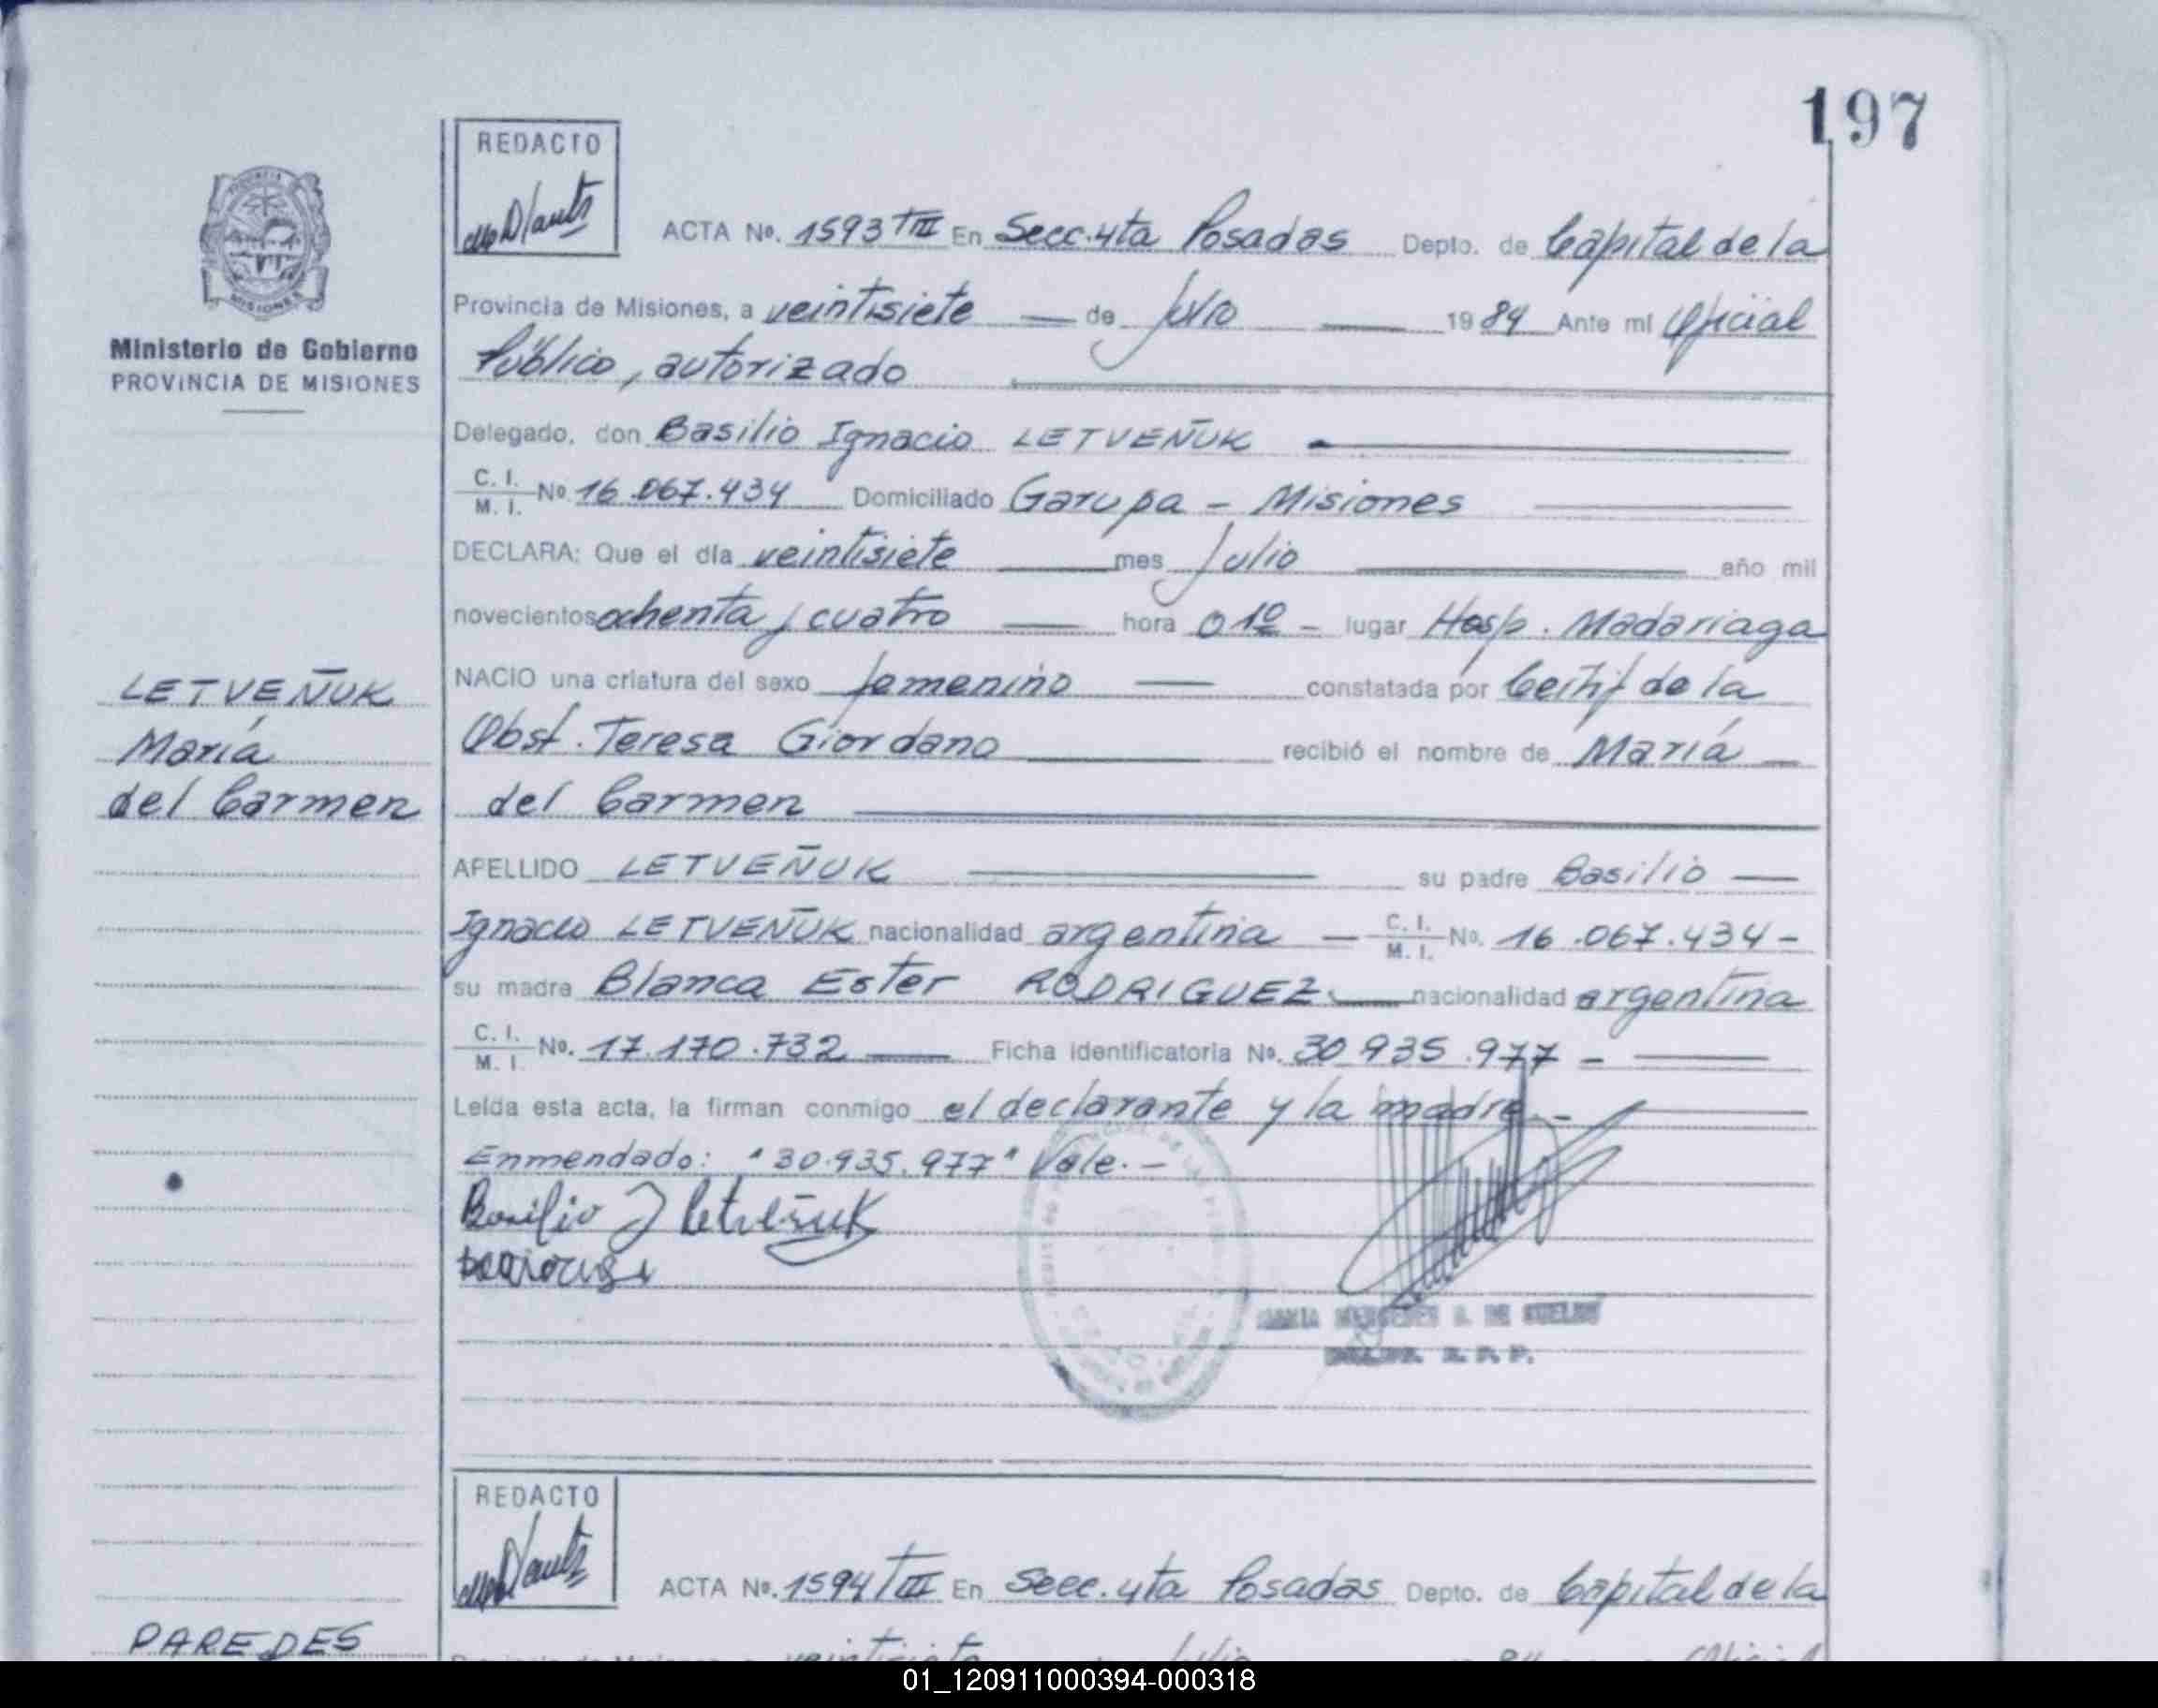 197
REDACTO
ACTA No. 1593 TIII En Secc. 4ta Posadas Depto. de Capital de la
Ministerio de Gobierno
PROVINCIA DE MISIONES
Provincia de Misiones, a veintisiete de Julio 1984 Ante mi Oficial
Público, autorizado
Delegado, don Basilio Ignacio LETVEÑUK
C. I.
M. I. No. 16.067.434 Domiciliado Garupa - Misiones
DECLARA: Que el día veintisiete mes Julio año mil
novecientos ochenta y cuatro hora 01º - lugar Hosp. Madariaga
LETVEÑUK
María
del Carmen
NACIO una criatura del sexo femenino constatada por Certif de la
Obst. Teresa Giordano recibió el nombre de María
del Carmen
APELLIDO LETVEÑUK su padre Basilio
Ignacio LETVEÑUK nacionalidad argentina — C. I. M. I. No. 16.067.434 -
su madre Blanca Ester RODRIGUEZ nacionalidad argentina
C. I.
M. I. No. 17.170.732 Ficha identificatoria No. 30.935.977 -
Leída esta acta, la firman conmigo el declarante y la madre.-
Enmendado: "30.935.977" Vale.-
Basilio I Letveñuk
REDACTO
ACTA No. 1594 TIII En Secc. 4ta Posadas Depto. de Capital de la
PAREDES
01_120911000394-000318